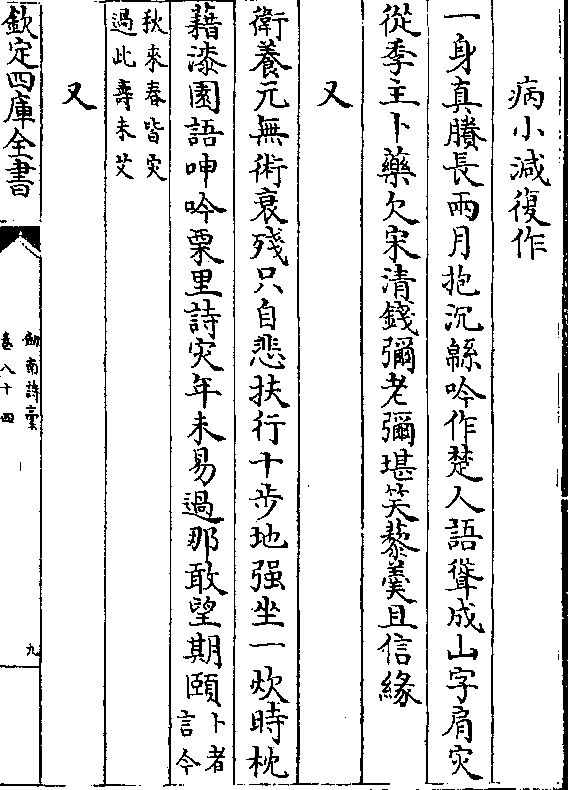 病小減復作
一身真賸長兩月抱沉緜吟作楚人語聳成山字肩災
從季主卜藥欠宋清錢彌老彌堪笑藜羹且信緣
又
衛養元無術衰殘只自悲扶行十步地强坐一炊時枕
藉漆園語呻吟栗里詩災年未易過那敢望期頤卜者
言今
秋來春皆災
過此壽未艾
又
欽定四庫全書
劍南詩稾
卷八十四
九